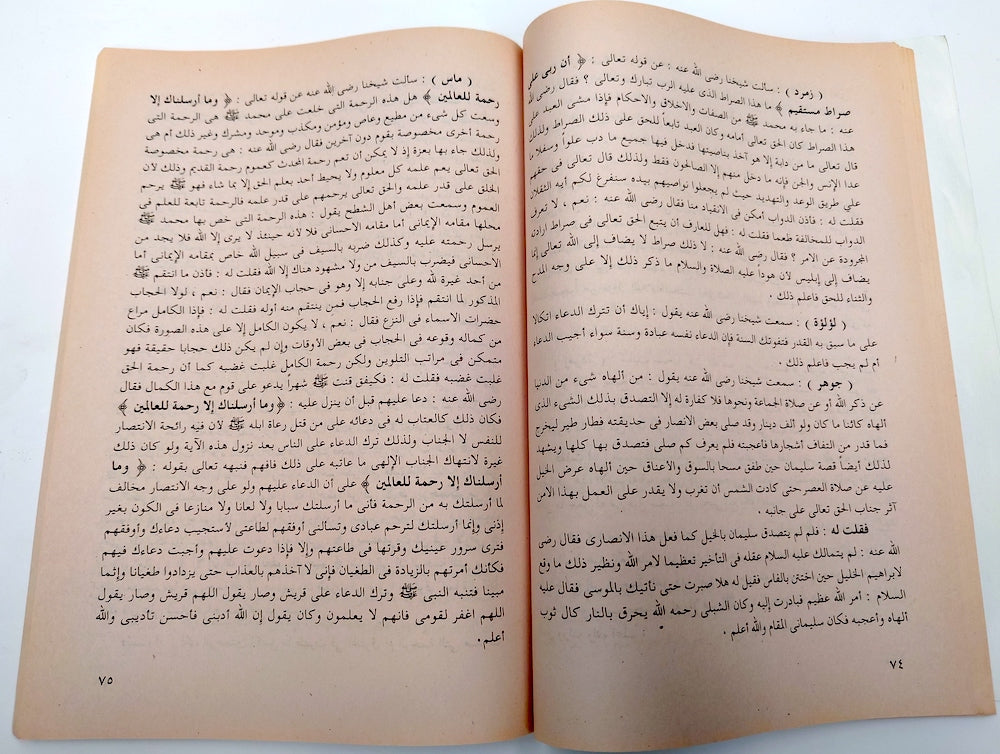 ( زمرد ) : سألت شيخنا رضى الله عنه : عن قوله تعالى : ﴿ أن ربى على
صراط مستقيم ﴾ ما هذا الصراط الذى عليه الرب تبارك وتعالى ؟ فقال رضى الله
عنه : ما جاء به محمد ﷺ من الصفات والاخلاق والاحكام فإذا مشى العبد على
هذا الصراط كان الحق تعالى أمامه وكان العبد تابعاً للحق على ذلك الصراط ولذلك
قال تعالى ما من دابة إلا هو آخذ بناصيتها فدخل فيها جميع ما دب علواً وسفلا ما
عدا الإنس والجن فإنه ما دخل منهم إلا الصالحون فقط ولذلك قال تعالى فى حقهم
على طريق الوعد والتهديد حيث لم يجعلوا نواصيهم بيده سنفرغ لكم أيه الثقلان
فقلت له : فأذن الدواب أمكن فى الانقياد منا فقال رضى الله عنه : نعم ، لا تعرف
الدواب للمخالفة طعما فقلت له : فهل للعارف أن يتبع الحق تعالى فى صراط ارادى
المجرودة عن الامر ؟ فقال رضى الله عنه : لا ذلك صراط لا يضاف إلى الله تعالى إنما
يضاف إلى إبليس لأن هوداً عليه الصلاة والسلام ما ذكر ذلك إلا على وجه المدح
والثناء للحق فاعلم ذلك .
( لؤلؤة ) : سمعت شيخنا رضى الله عنه يقول : إياك أن تترك الدعاء اتكالا
على ما سبق به القدر فتفوتك السنة فإن الدعاء نفسه عبادة وسنة سواء أجيب الدعاء
أم لم يجب فاعلم ذلك .
( جوهر ) : سمعت شيخنا رضى الله عنه يقول : من ألهاه شىء من الدنيا
عن ذكر الله أو عن صلاة الجماعة ونحوها فلا كفارة له إلا التصدق بذلك الشىء الذى
ألهاه كائنا ما كان ولو ألف دينار وقد صلى بعض الانصار فى حديقته فطار طير ليخرج
فما قدر من التفاف أشجارها فأعجبته فلم يعرف كم صلى فتصدق بها كلها ويشهد
لذلك أيضاً قصة سليمان حين طفق مسحا بالسوق والاعناق حين ألهاه عرض الخيل
عليه عن صلاة العصر حتى كادت الشمس أن تغرب ولا يقدر على العمل بهذا الامن
آثر جناب الحق تعالى على جانبه .
فقلت له : فلم لم يتصدق سليمان بالخيل كما فعل هذا الانصارى فقال رضى
الله عنه : لم يتمالك عليه السلام عقله فى التأخير تعظيما لامر الله ونظير ذلك ما وقع
لابراهيم الخليل حين اختتن بالفاس فقيل له هلا صبرت حتى نأتيك بالموسى فقال عليه
السلام : أمر الله عظيم فبادرت إليه وكان الشبلى رحمه الله يحرق بالنار كال ثوب
ألهاه وأعجبه فكان سليمانى المقام والله أعلم .
٧٤
( ماس ) : سألت شيخنا رضى الله عنه عن قوله تعالى : ﴿ وما أرسلناك إلا
رحمة للعالمين ﴾ هل هذه الرحمة التى خلعت على محمد ﷺ هى الرحمة التى
وسعت كل شىء من مطيع وعاص ومؤمن ومكذب وموحد ومشرك وغير ذلك أم هى
رحمة أخرى مخصوصة بقوم دون آخرين فقال رضى الله عنه : هى رحمة مخصوصة
ولذلك جاء بها بعزة إذ لا يمكن أن تعم رحمة المحدث كعموم رحمة القديم وذلك لان
الحق تعالى يعم علمه كل معلوم ولا يحيط أحد بعلم الحق إلا بما شاء فهو ﷺ يرحم
الخلق على قدر علمه والحق تعالى يرحمهم على قدر علمه فالرحمة تابعة للعلم فى
العموم وسمعت بعض أهل الشطح يقول : هذه الرحمة التى خص بها محمد ﷺ
محلها مقامه الإيمانى أما مقامه الاحسانى فلا لانه حينئذ لا يرى إلا الله فلا يجد من
يرسل رحمته عليه وكذلك ضربه بالسيف فى سبيل الله خاص بمقامه الإيمانى أما
الاحسانى فيضرب بالسيف من ولا مشهود هناك إلا الله فقلت له : فأذن ما انتقم ﷺ
من أحد غيرة لله وعلى جنابه إلا وهو فى حجاب الإيمان فقال : نعم ، لولا الحجاب
المذكور لما انتقم فإذا رفع الحجاب فمن ينتقم منه أوله فقلت له : فإذا الكامل مراع
حضرات الاسماء فى النزع فقال : نعم ، لا يكون الكامل إلا على هذه الصورة فكان
من كماله وقوعه فى الحجاب فى بعض الأوقات وإن لم يكن ذلك حجابا حقيقة فهو
متمكن فى مراتب التلوين ولكن رحمة الكامل غلبت غضبه كما أن رحمة الحق
غلبت غضبه فقلت له : فكيفق قنت ﷺ شهراً يدعو على قوم مع هذا الكمال فقال
رضى الله عنه : دعا عليهم قبل أن ينزل عليه : ﴿ وما أرسلناك إلا رحمة للعالمين ﴾
فكان ذلك كالعتاب له فى دعائه على من قتل رعاة ابله ﷺ لأن فيه رائحة الانتصار
للنفس لا الجناب ولذلك ترك الدعاء على الناس بعد نزول هذه الآية ولو كان ذلك
غيرة لانتهاك الجناب الإلهى ما عاتبه على ذلك فافهم فنبهه تعالى بقوله : ﴿ وما
أرسلناك إلا رحمة للعالمين ﴾ على أن الدعاء عليهم ولو على وجه الانتصار مخالف
لما أرسلتك به من الرحمة فأنى ما أرسلتك سبابا ولا لعانا ولا منازعا فى الكون بغير
إذنى وإنما أرسلتك لترحم عبادى وتسألنى أوفقهم لطاعتى لأستجيب دعاءك وأوفقهم
فترى سرور عينيك وقرتها فى طاعتهم وإلا فإذا دعوت عليهم وأجبت دعاءك فيهم
فكأنك أمرتهم بالزيادة فى الطغيان فإنى لا آخذهم بالعذاب حتى يزدادوا طغيانا وإثما
مبينا فتنبه النبى ﷺ وترك الدعاء على قريش وصار يقول اللهم قريش وصار يقول
اللهم اغفر لقومى فانهم لا يعلمون وكان يقول إن الله أدبنى فأحسن تأديبى والله
أعلم .
٧٥